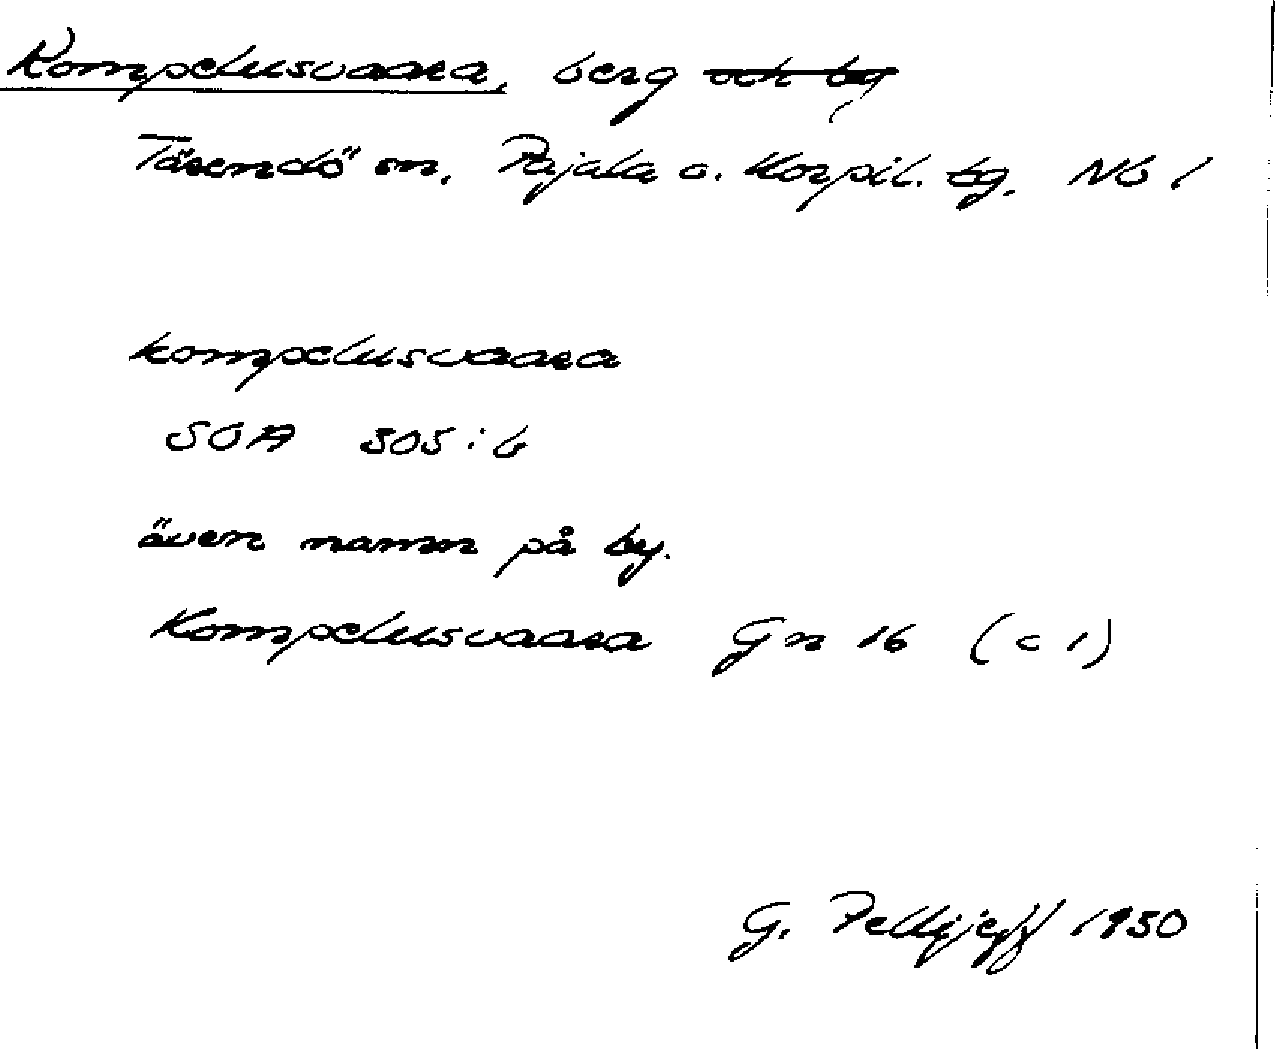 Kompelusvaara, berg och by
Tärendö sn. Pajala o. Korpil. tg. Nb l
kompelusvaara
SOA 305:6
även namn på by.
Kompelusvaara Gn 16 (c 1)
G. Pellijeff 1950